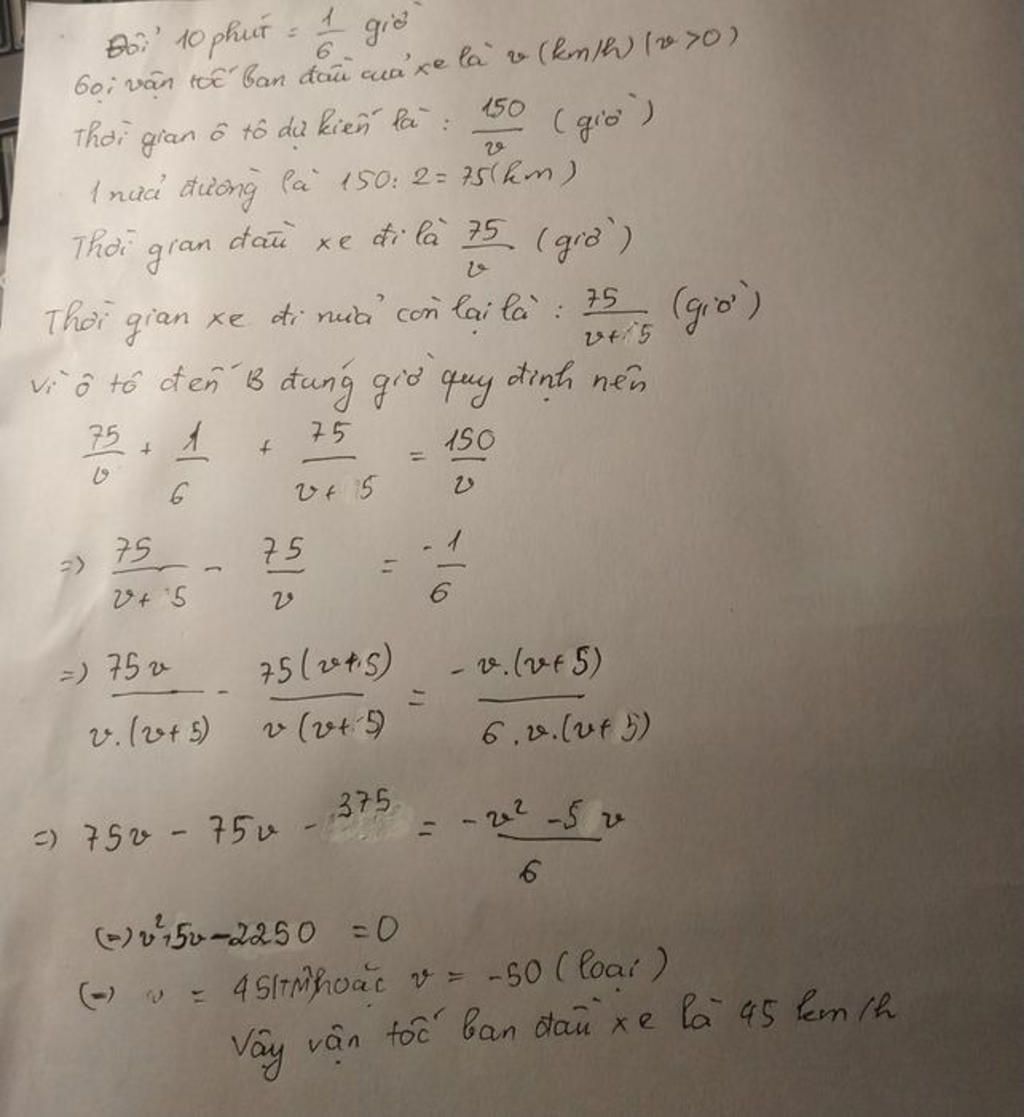 Đổi 10 phút = 1/6 giờ
Gọi vận tốc ban đầu của xe là v (km/h) (v > 0)
Thời gian ô tô dự kiến là : 150/v (giờ)
1 nửa đường là 150 : 2 = 75 (km)
Thời gian đầu xe đi là 75/v (giờ)
Thời gian xe đi nửa còn lại là : 75/(v+5) (giờ)
Vì ô tô đến B đúng giờ quy định nên
75/v + 1/6 + 75/(v+5) = 150/v
=) 75/(v+5) - 75/v = -1/6
=) 75v/(v.(v+5)) - 75(v+5)/(v(v+5)) = -v.(v+5)/(6.v.(v+5))
=) 75v - 75v - 375 = (-v² -5v)/6
(=) v²+5v-2250 = 0
(=) v = 45(TM) hoặc v = -50 (loại)
Vậy vận tốc ban đầu xe là 45 km/h